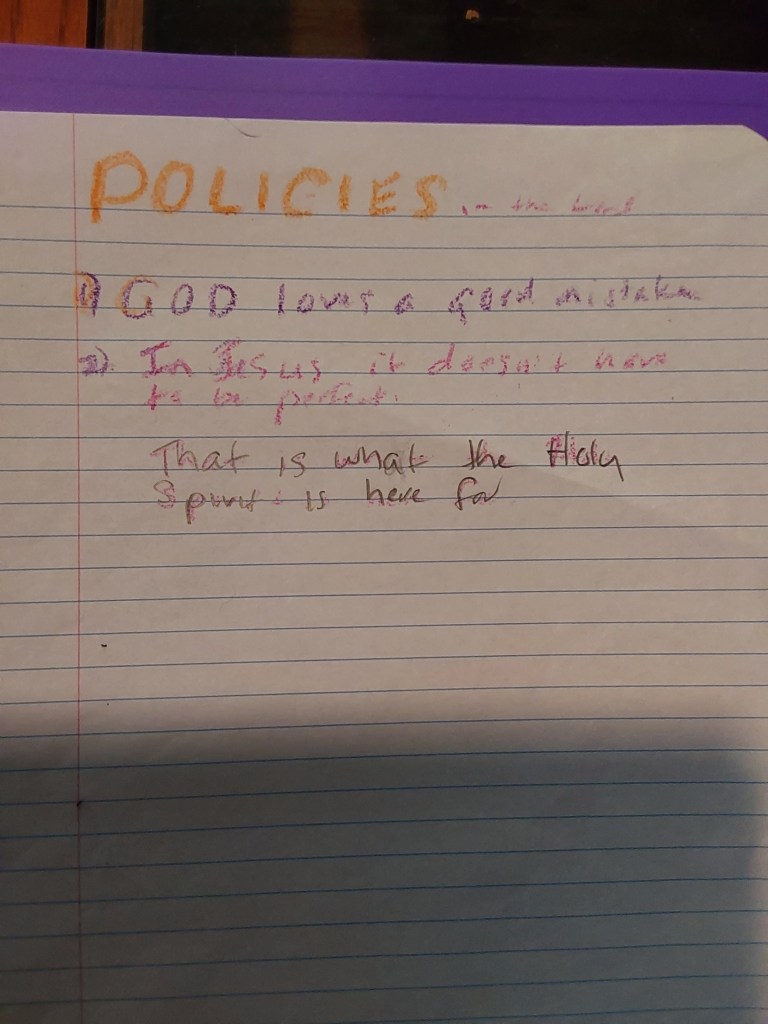 POLICIES .. the
1) GOD loves a good mistake
2) In Jesus it doesn't have
to be perfect.
That is what the Holy
Spirit is here for